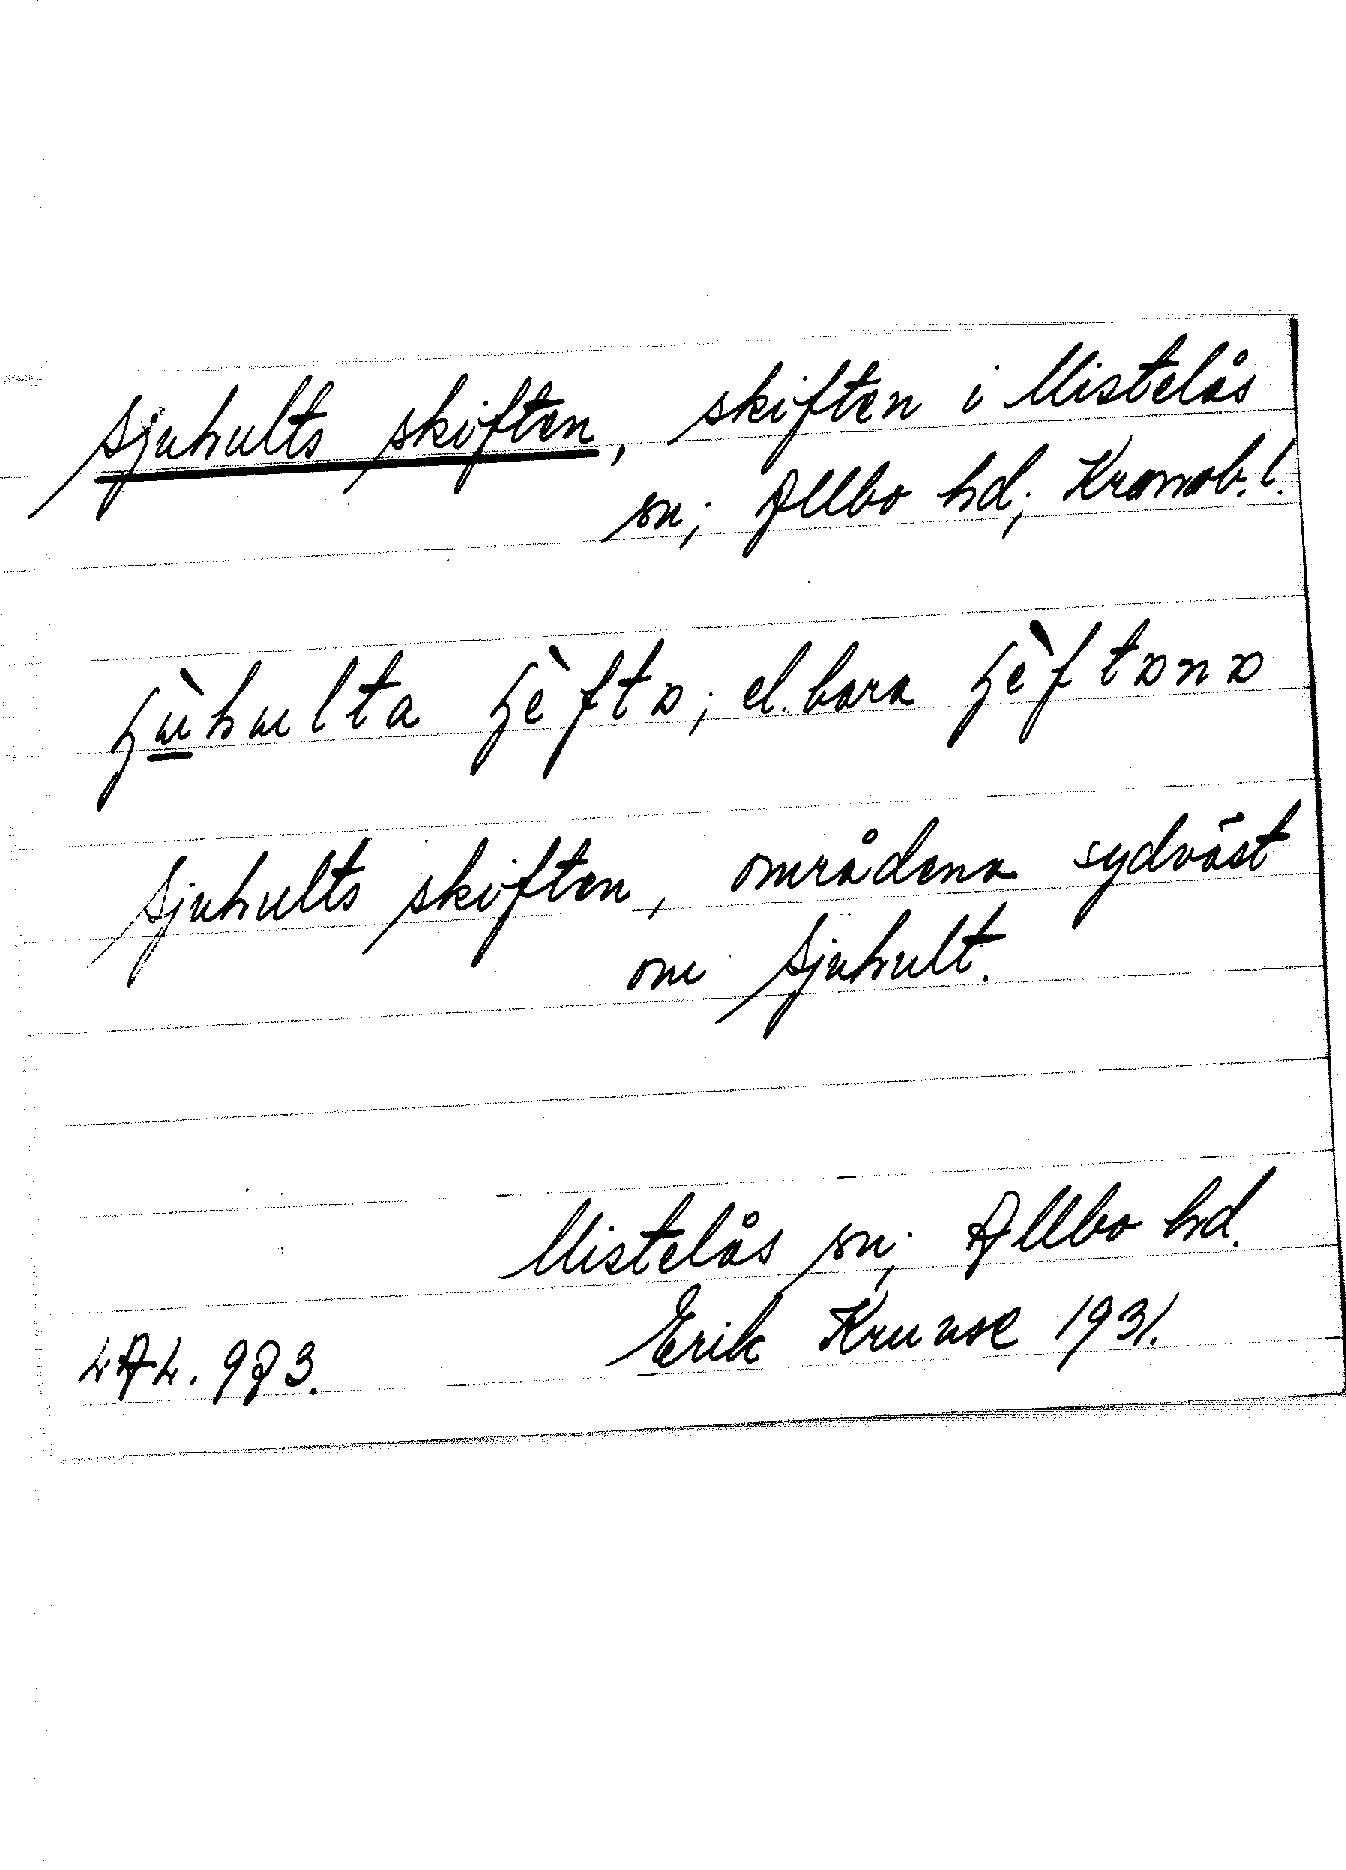 Sjuhults skiften, skiften i Mistelås
sn; Allbo hd; Kronob. l.
ɧùhulta ɧèftə; el. bara ɧèftənə
Sjuhults skiften, områdena sydväst
om Sjuhult.
Mistelås sn; Allbo hd.
Erik Kruuse 1931.
LAL. 973.